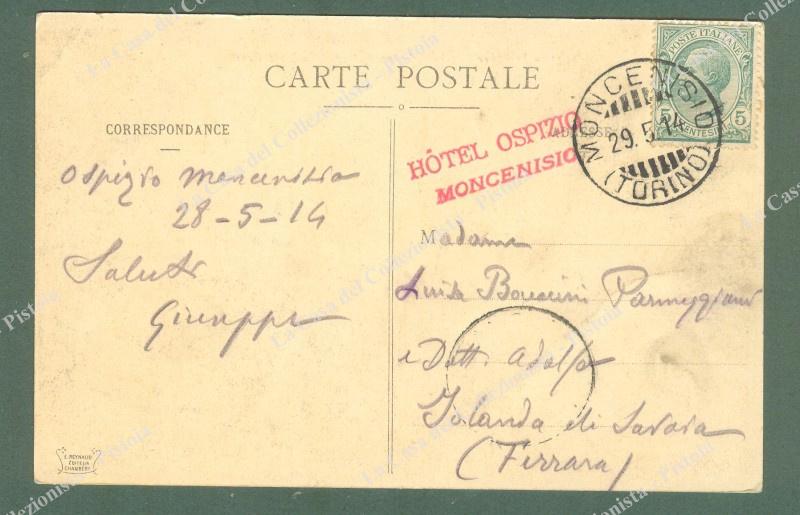 CARTE POSTALE
CORRESPONDANCE
ADRESSE
POSTE ITALIANE
5 CENTESIMI 5
MONCENISIO
29.5.14
(TORINO)
HÔTEL OSPIZIO
MONCENISIO
Ospizio Moncenisio
28-5-14
Saluti
Giuseppe
Madame
Luisa Parmeggiani
e Dott. Adolfo
Jolanda di Savoia
(Ferrara)
E. REYNAUD
EDITEUR
CHAMBERY
La Casa del Collezionista - Pistoia